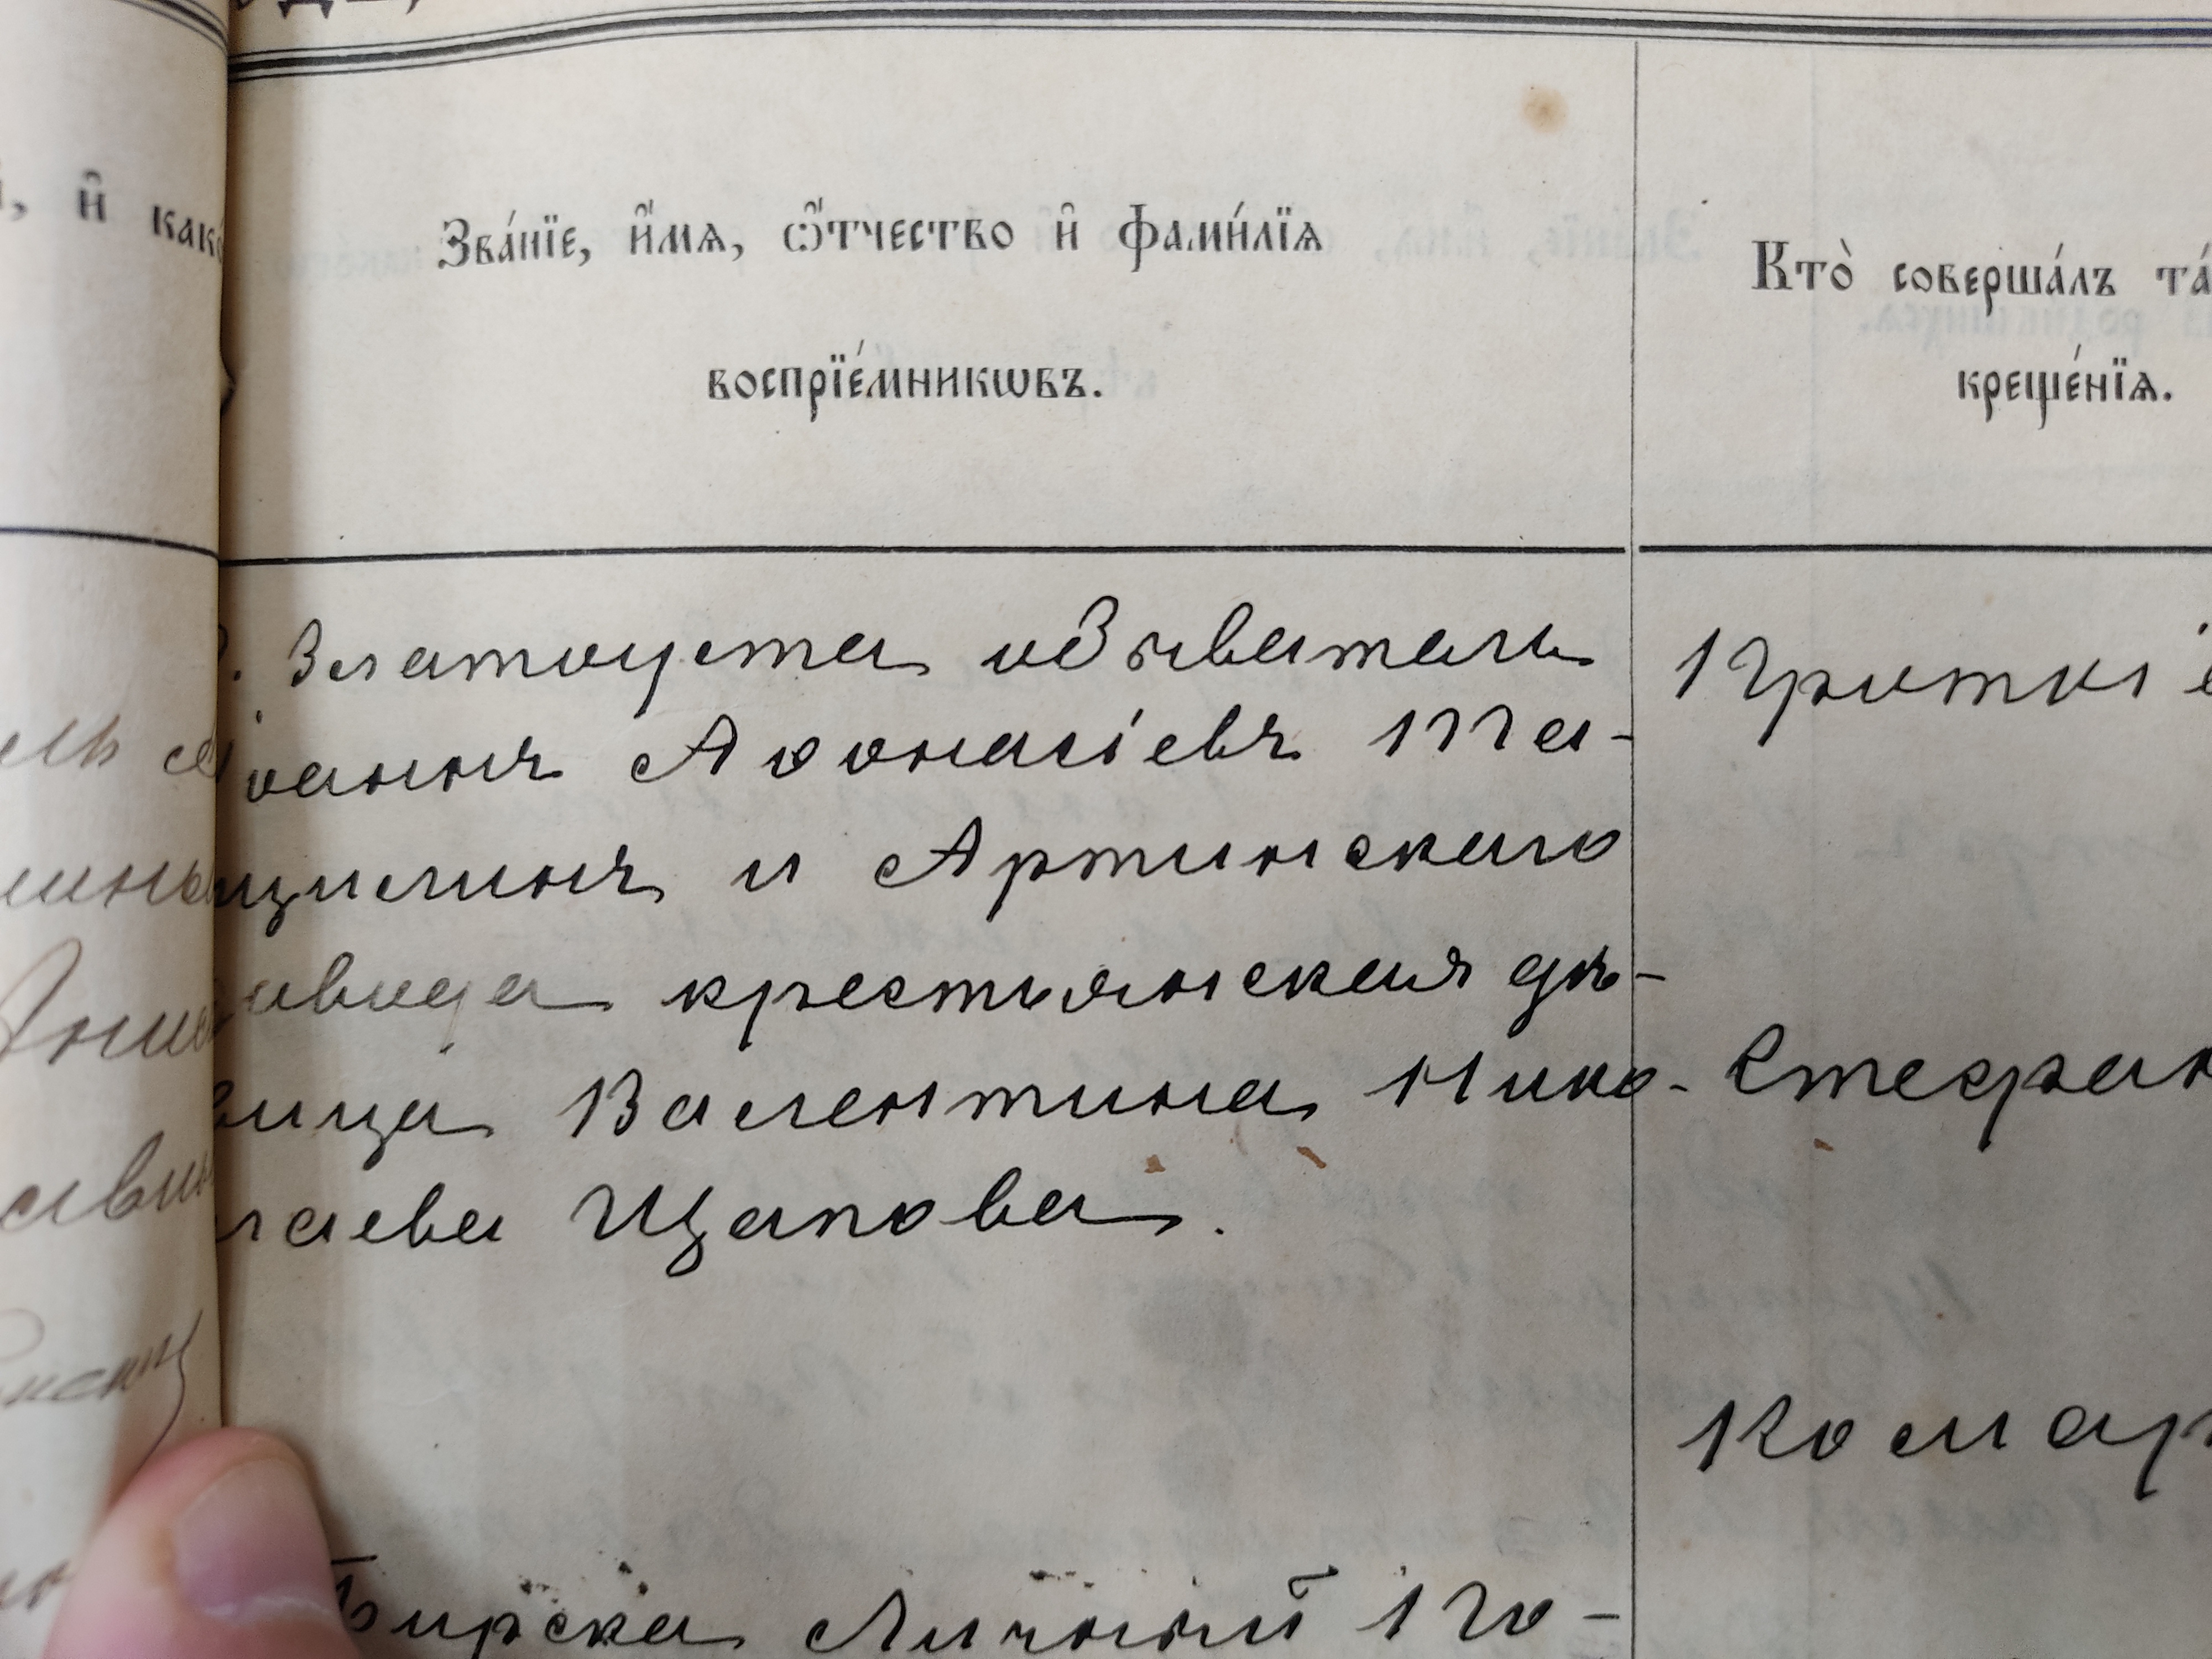 й како
Зва́нїе, и҆́мѧ, ѻ҆́тчество и҆ фами́лїѧ
воспрїе́мникѡвъ.
Кто̀ соверша́лъ та́
креще́нїѧ.
Златоуста обыватель
Іоаннъ Аѳонасіевъ Та-
щилинъ и Артинскаго
завода крестьянская дѣ-
вица Валентина Нико-
лаева Щапова.
Кроткіе
Стефан
Комар
Бирска Личный По-